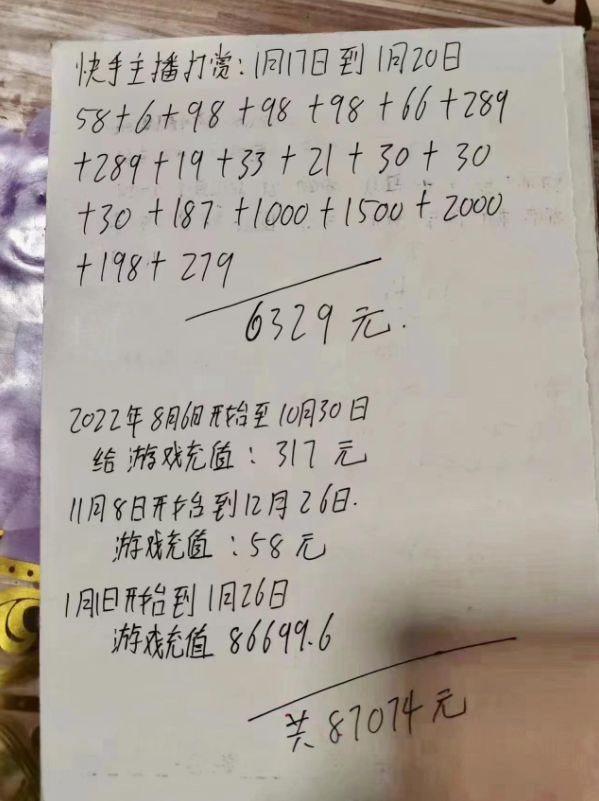 快手主播打赏:1月17日到1月20日
58+6+98+98+98+66+289
+289+19+33+21+30+30
+30+187+1000+1500+2000
+198+279
6329元.
2022年8月6日开始至10月30日
给游戏充值:317元
11月8日开始到12月26日.
游戏充值:58元
1月1日开始到1月26日
游戏充值86699.6
共87074元